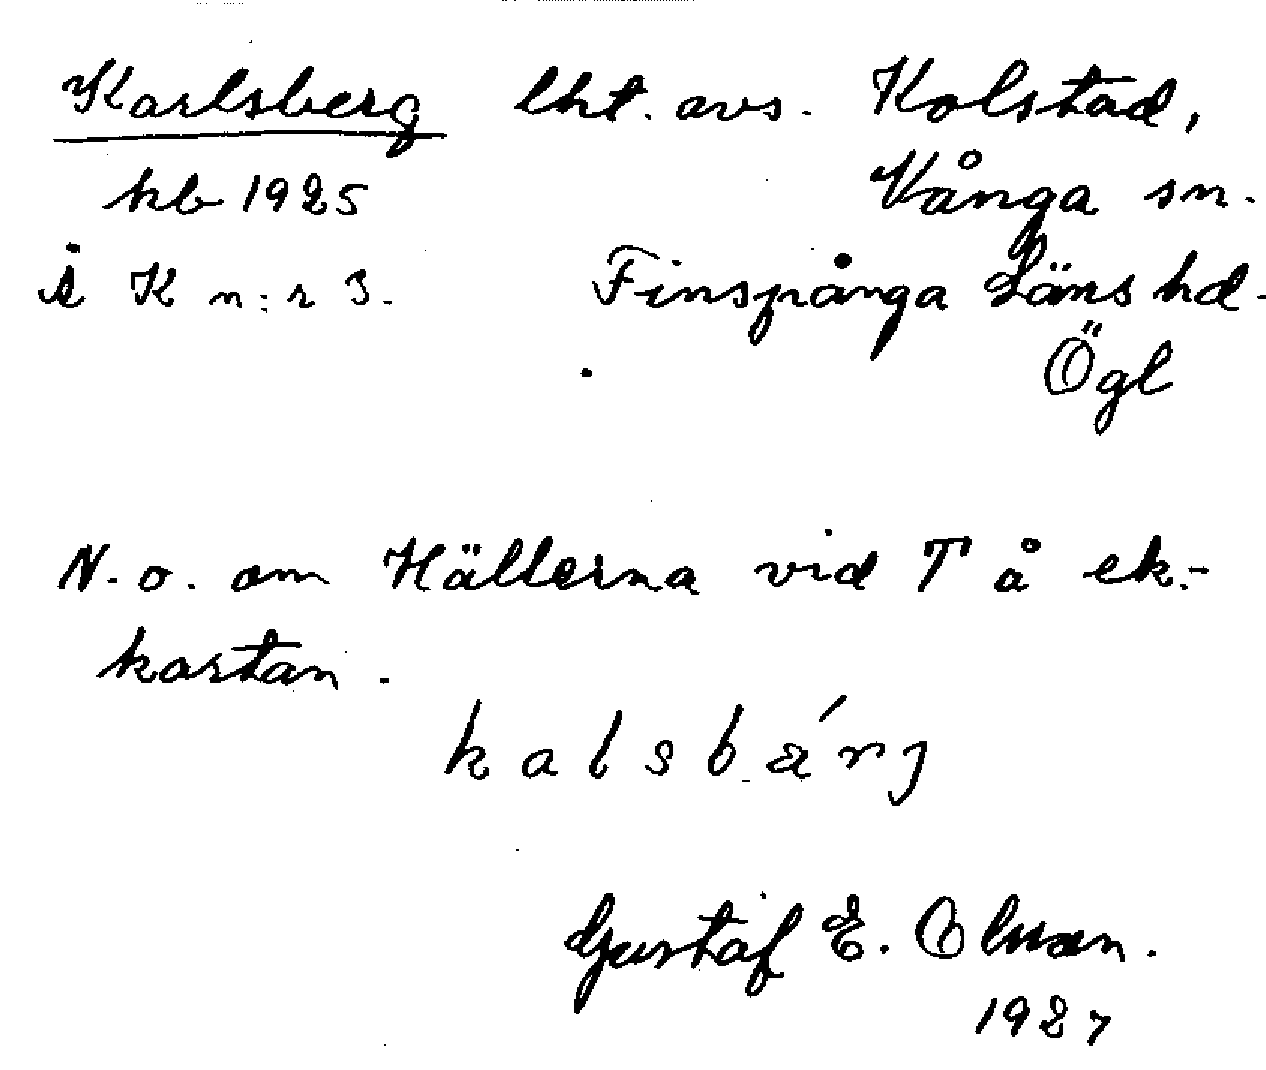 Karlsberg lht. avs. Kolstad,
kb 1925 Vånga sn.
i K n:r 3. Finspånga Läns hd.
Ögl
N. o. om Hällerna vid T å ek.-
kartan.
kalsbärj
Gustaf E. Olsson.
1927